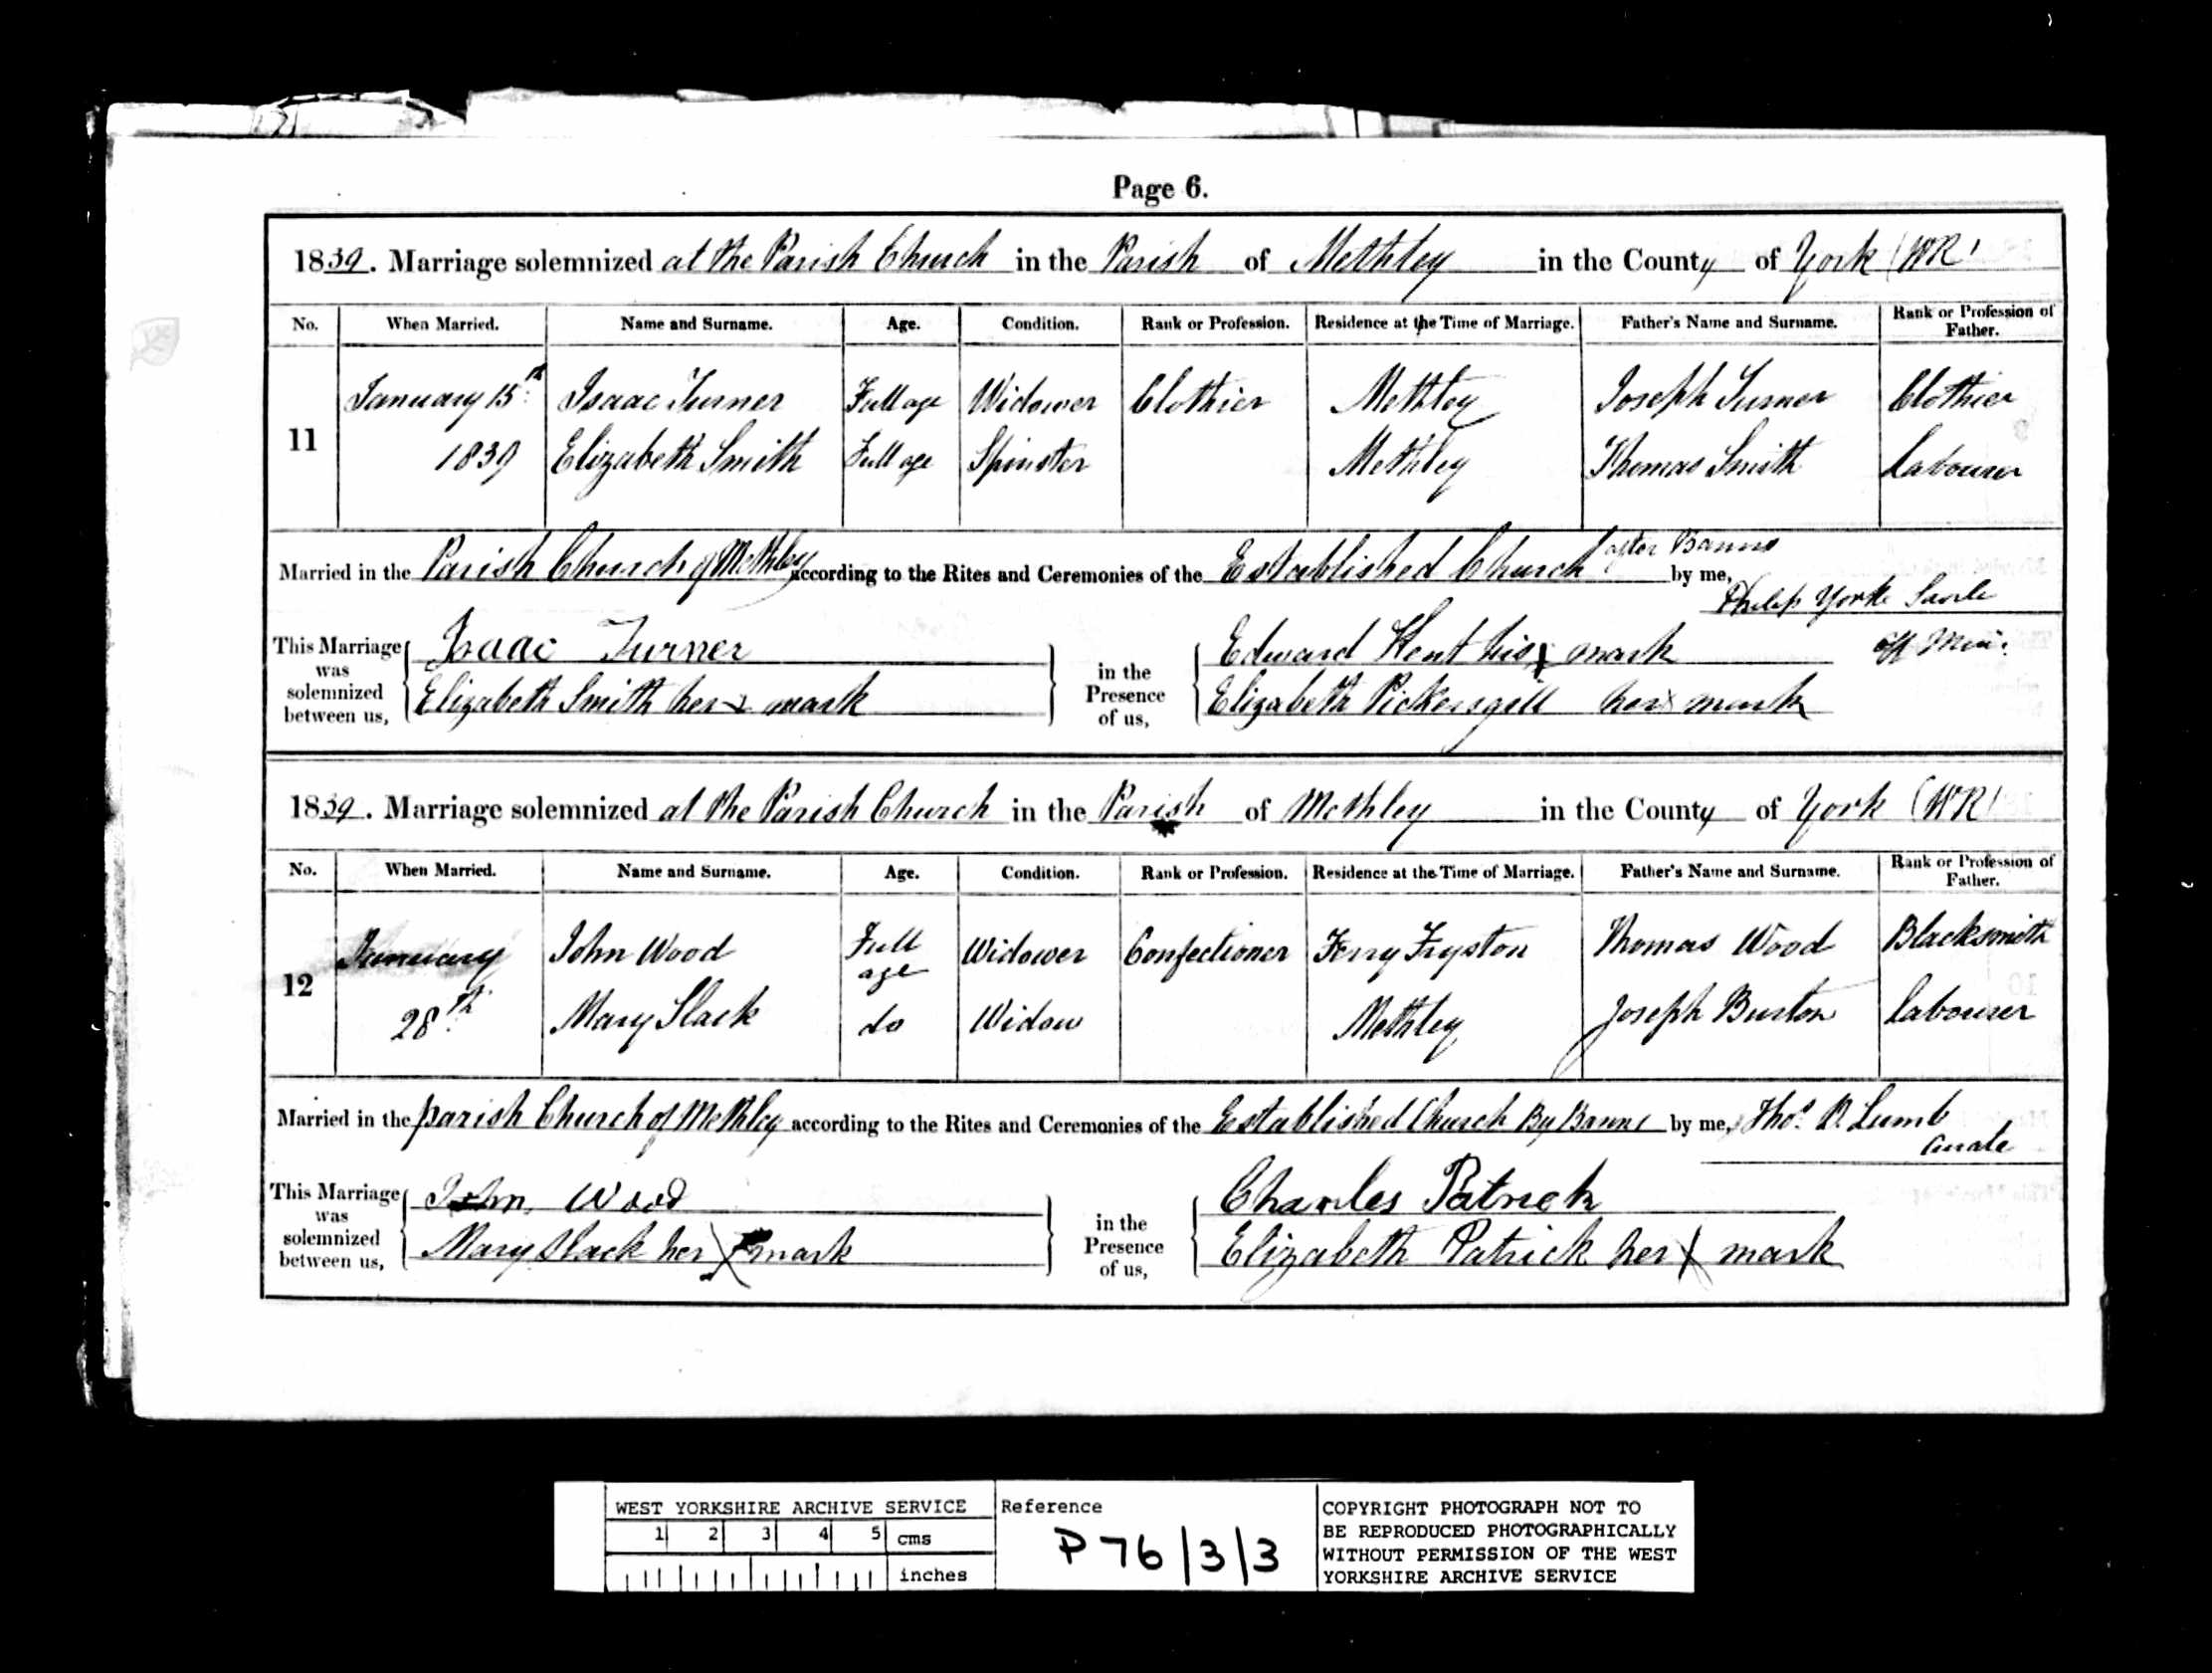 Page 6.
1839. Marriage solemnized at the Parish Church in the Parish of Methley in the County of York (WR)
No. When Married. Name and Surname. Age. Condition. Rank or Profession. Residence at the Time of Marriage. Father's Name and Surname. Rank or Profession of Father.
11 January 15th Isaac Turner Full age Widower Clothier Methley Joseph Turner Clothier
1839 Elizabeth Smith Full age Spinster Methley Thomas Smith Labourer
Married in the Parish Church of Methley according to the Rites and Ceremonies of the Established Church after Banns by me,
Philip Yorke Savile
This Marriage was solemnized between us, Isaac Turner in the Presence of us, Edward Kent his x mark
Elizabeth Smith her x mark Elizabeth Pickersgill her x mark
1839. Marriage solemnized at the Parish Church in the Parish of Methley in the County of York (WR)
No. When Married. Name and Surname. Age. Condition. Rank or Profession. Residence at the Time of Marriage. Father's Name and Surname. Rank or Profession of Father.
12 January John Wood Full age Widower Confectioner Ferry Fryston Thomas Wood Blacksmith
28th Mary Slack do Widow Methley Joseph Burton Labourer
Married in the parish Church of Methley according to the Rites and Ceremonies of the Established Church By Banns by me, Thos. D. Lumb
Curate
This Marriage was solemnized between us, John Wood in the Presence of us, Charles Patrick
Mary Slack her x mark Elizabeth Patrick her x mark
WEST YORKSHIRE ARCHIVE SERVICE
1 2 3 4 5 cms
inches
Reference
P76/3/3
COPYRIGHT PHOTOGRAPH NOT TO
BE REPRODUCED PHOTOGRAPHICALLY
WITHOUT PERMISSION OF THE WEST
YORKSHIRE ARCHIVE SERVICE